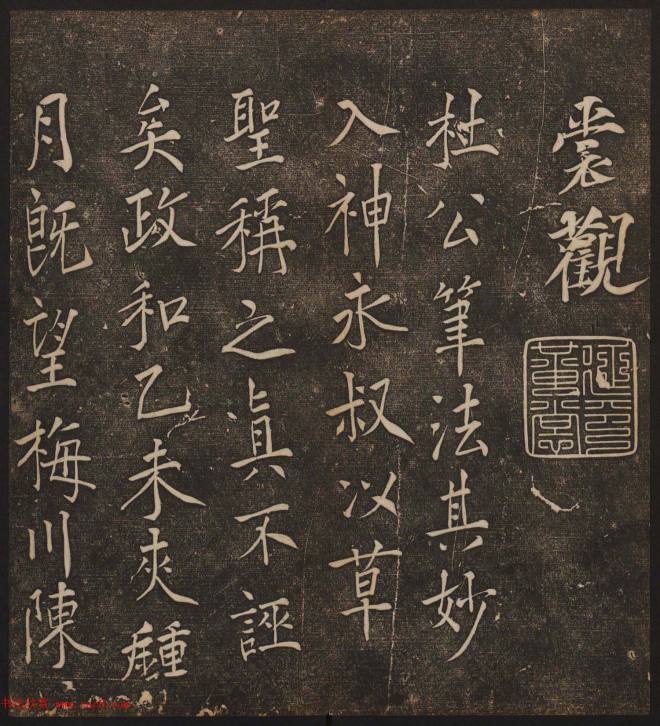 裳觀
杜公筆法其妙
入神永叔以草
聖稱之眞不誣
矣政和乙未夾鍾
月旣望梅川陳